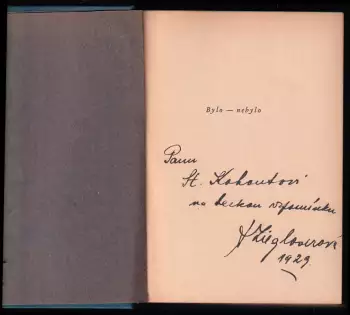 Bylo — nebylo
Panu
St. Kohoutovi
na hezkou vzpomínku
KZiegloserová
1929.